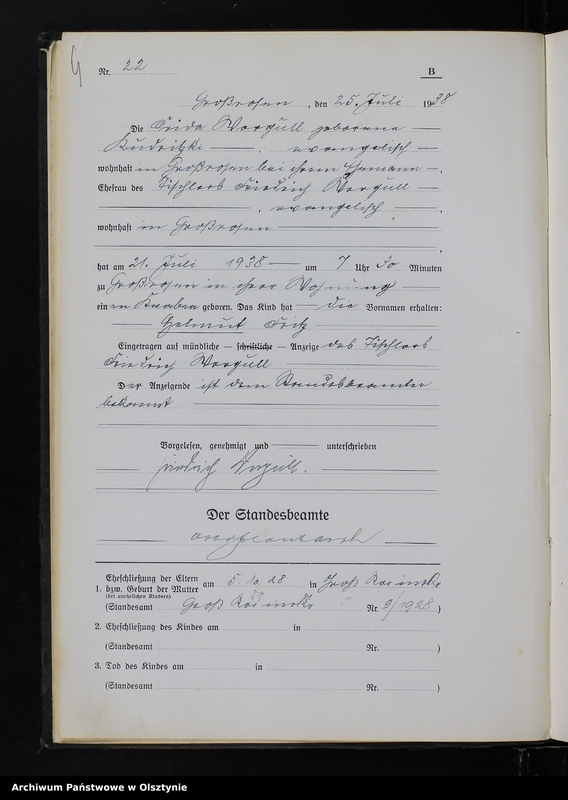 Nr. 22
B
Großrosen, den 25. Juli 1938
Die Frida Worgull geborene
Kudritzki, evangelisch
wohnhaft in Großrosen bei ihrem Ehemann,
Ehefrau des Tischlers Friedrich Worgull
, evangelisch,
wohnhaft in Großrosen
,
hat am 21. Juli 1938 um 7 Uhr 30 Minuten
zu Großrosen in ihrer Wohnung
einen Knaben geboren. Das Kind hat die Vornamen erhalten:
Helmut Fritz
Eingetragen auf mündliche – schriftliche – Anzeige des Tischlers
Friedrich Worgull
Der Anzeigende ist dem Standesbeamten
bekannt
Vorgelesen, genehmigt und unterschrieben
Friedrich Worgull.
Der Standesbeamte
1. Eheschließung der Eltern
bzw. Geburt der Mutter am 5.10.28 in Groß Rosinsko
(bei unehelichen Kindern)
(Standesamt Groß Rosinsko Nr. 9/1928)
2. Eheschließung des Kindes am in
(Standesamt Nr. )
3. Tod des Kindes am in
(Standesamt Nr. )
Archiwum Państwowe w Olsztynie